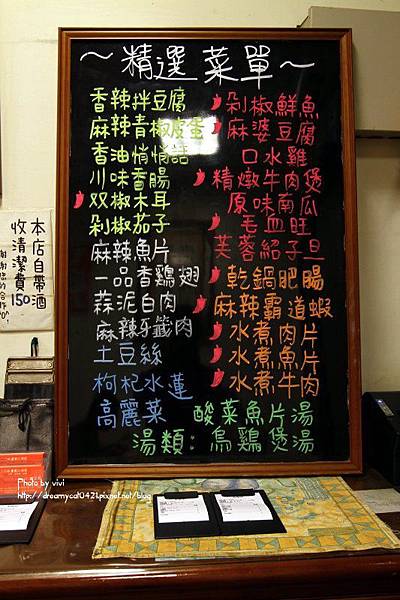 ～精選菜單～
香辣拌豆腐
麻辣青椒皮蛋
香油悄悄話
川味香腸
双椒木耳
剁椒茄子
麻辣魚片
一品香鷄翅
蒜泥白肉
麻辣牙籤肉
土豆絲
枸杞水蓮
高麗菜
剁椒鮮魚
麻婆豆腐
口水雞
精燉牛肉煲
原味南瓜
毛血旺
芙蓉紹子旦
乾鍋肥腸
麻辣霸道蝦
水煮肉片
水煮魚片
水煮牛肉
酸菜魚片湯
湯類：烏鷄煲湯
本店自帶酒
收清潔費150
謝謝您的合作
Photo by vivi
http://dreamycat0421.pixnet.net/blog